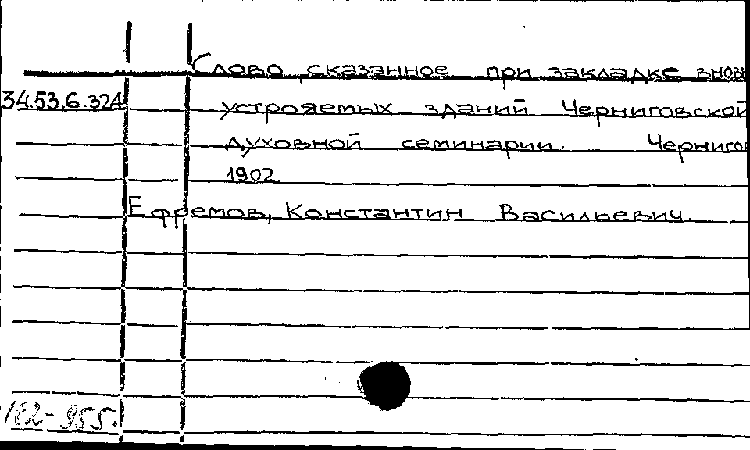 Слово сказанное при закладке вновь
34.53.6.324 устрояемых зданий Черниговской
духовной семинарии. Чернигов
1902
Ефремов, Константин Васильевич.
162-955.